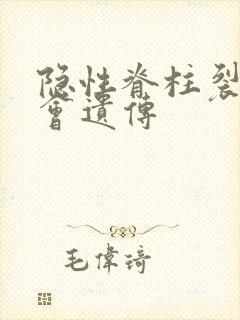 隐性脊柱裂
會遺傳
毛偉琦